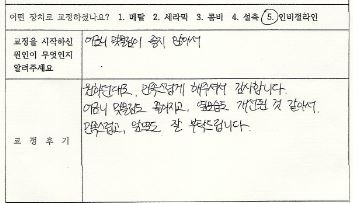 어떤 장치로 교정하셨나요? 1. 메탈 2. 세라믹 3. 콤비 4. 설측 5. 인비절라인
교정을 시작하신
원인이 무엇인지
알려주세요
어금니 맞물림이 좋지 않아서
교 정 후 기
원하던대로, 만족스럽게 해주셔서 감사합니다.
어금니 맞물림도 좋아지고, 옆모습도 개선된 것 같아서
만족스럽고, 앞으로도 잘 부탁드립니다.